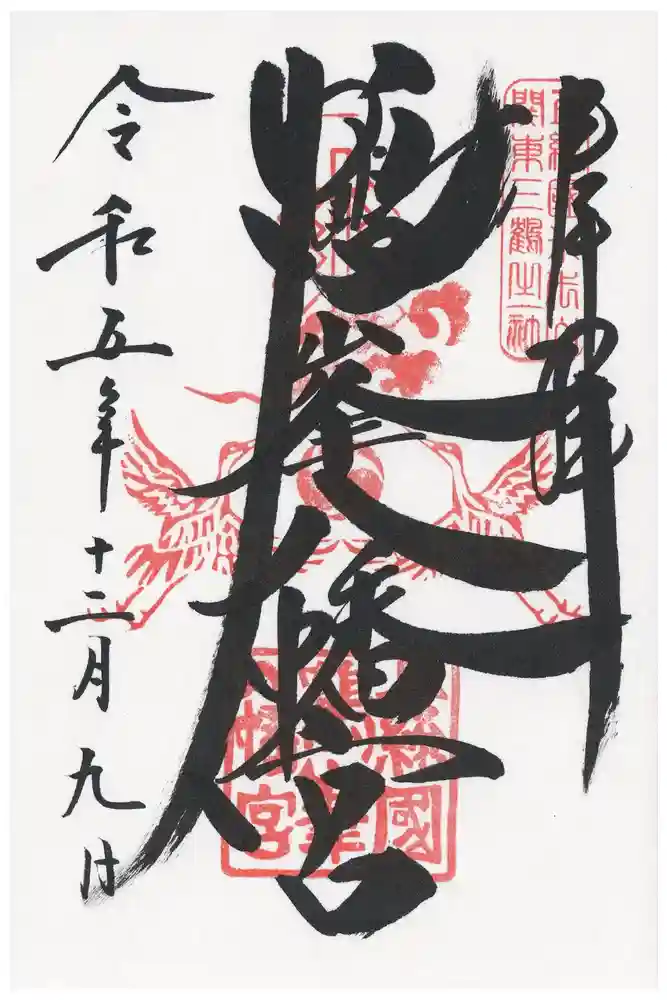 奉拝
関東三鶴之一社
鶴峯八幡宮
上総國
鶴峯
八幡宮
令和五年十二月九日